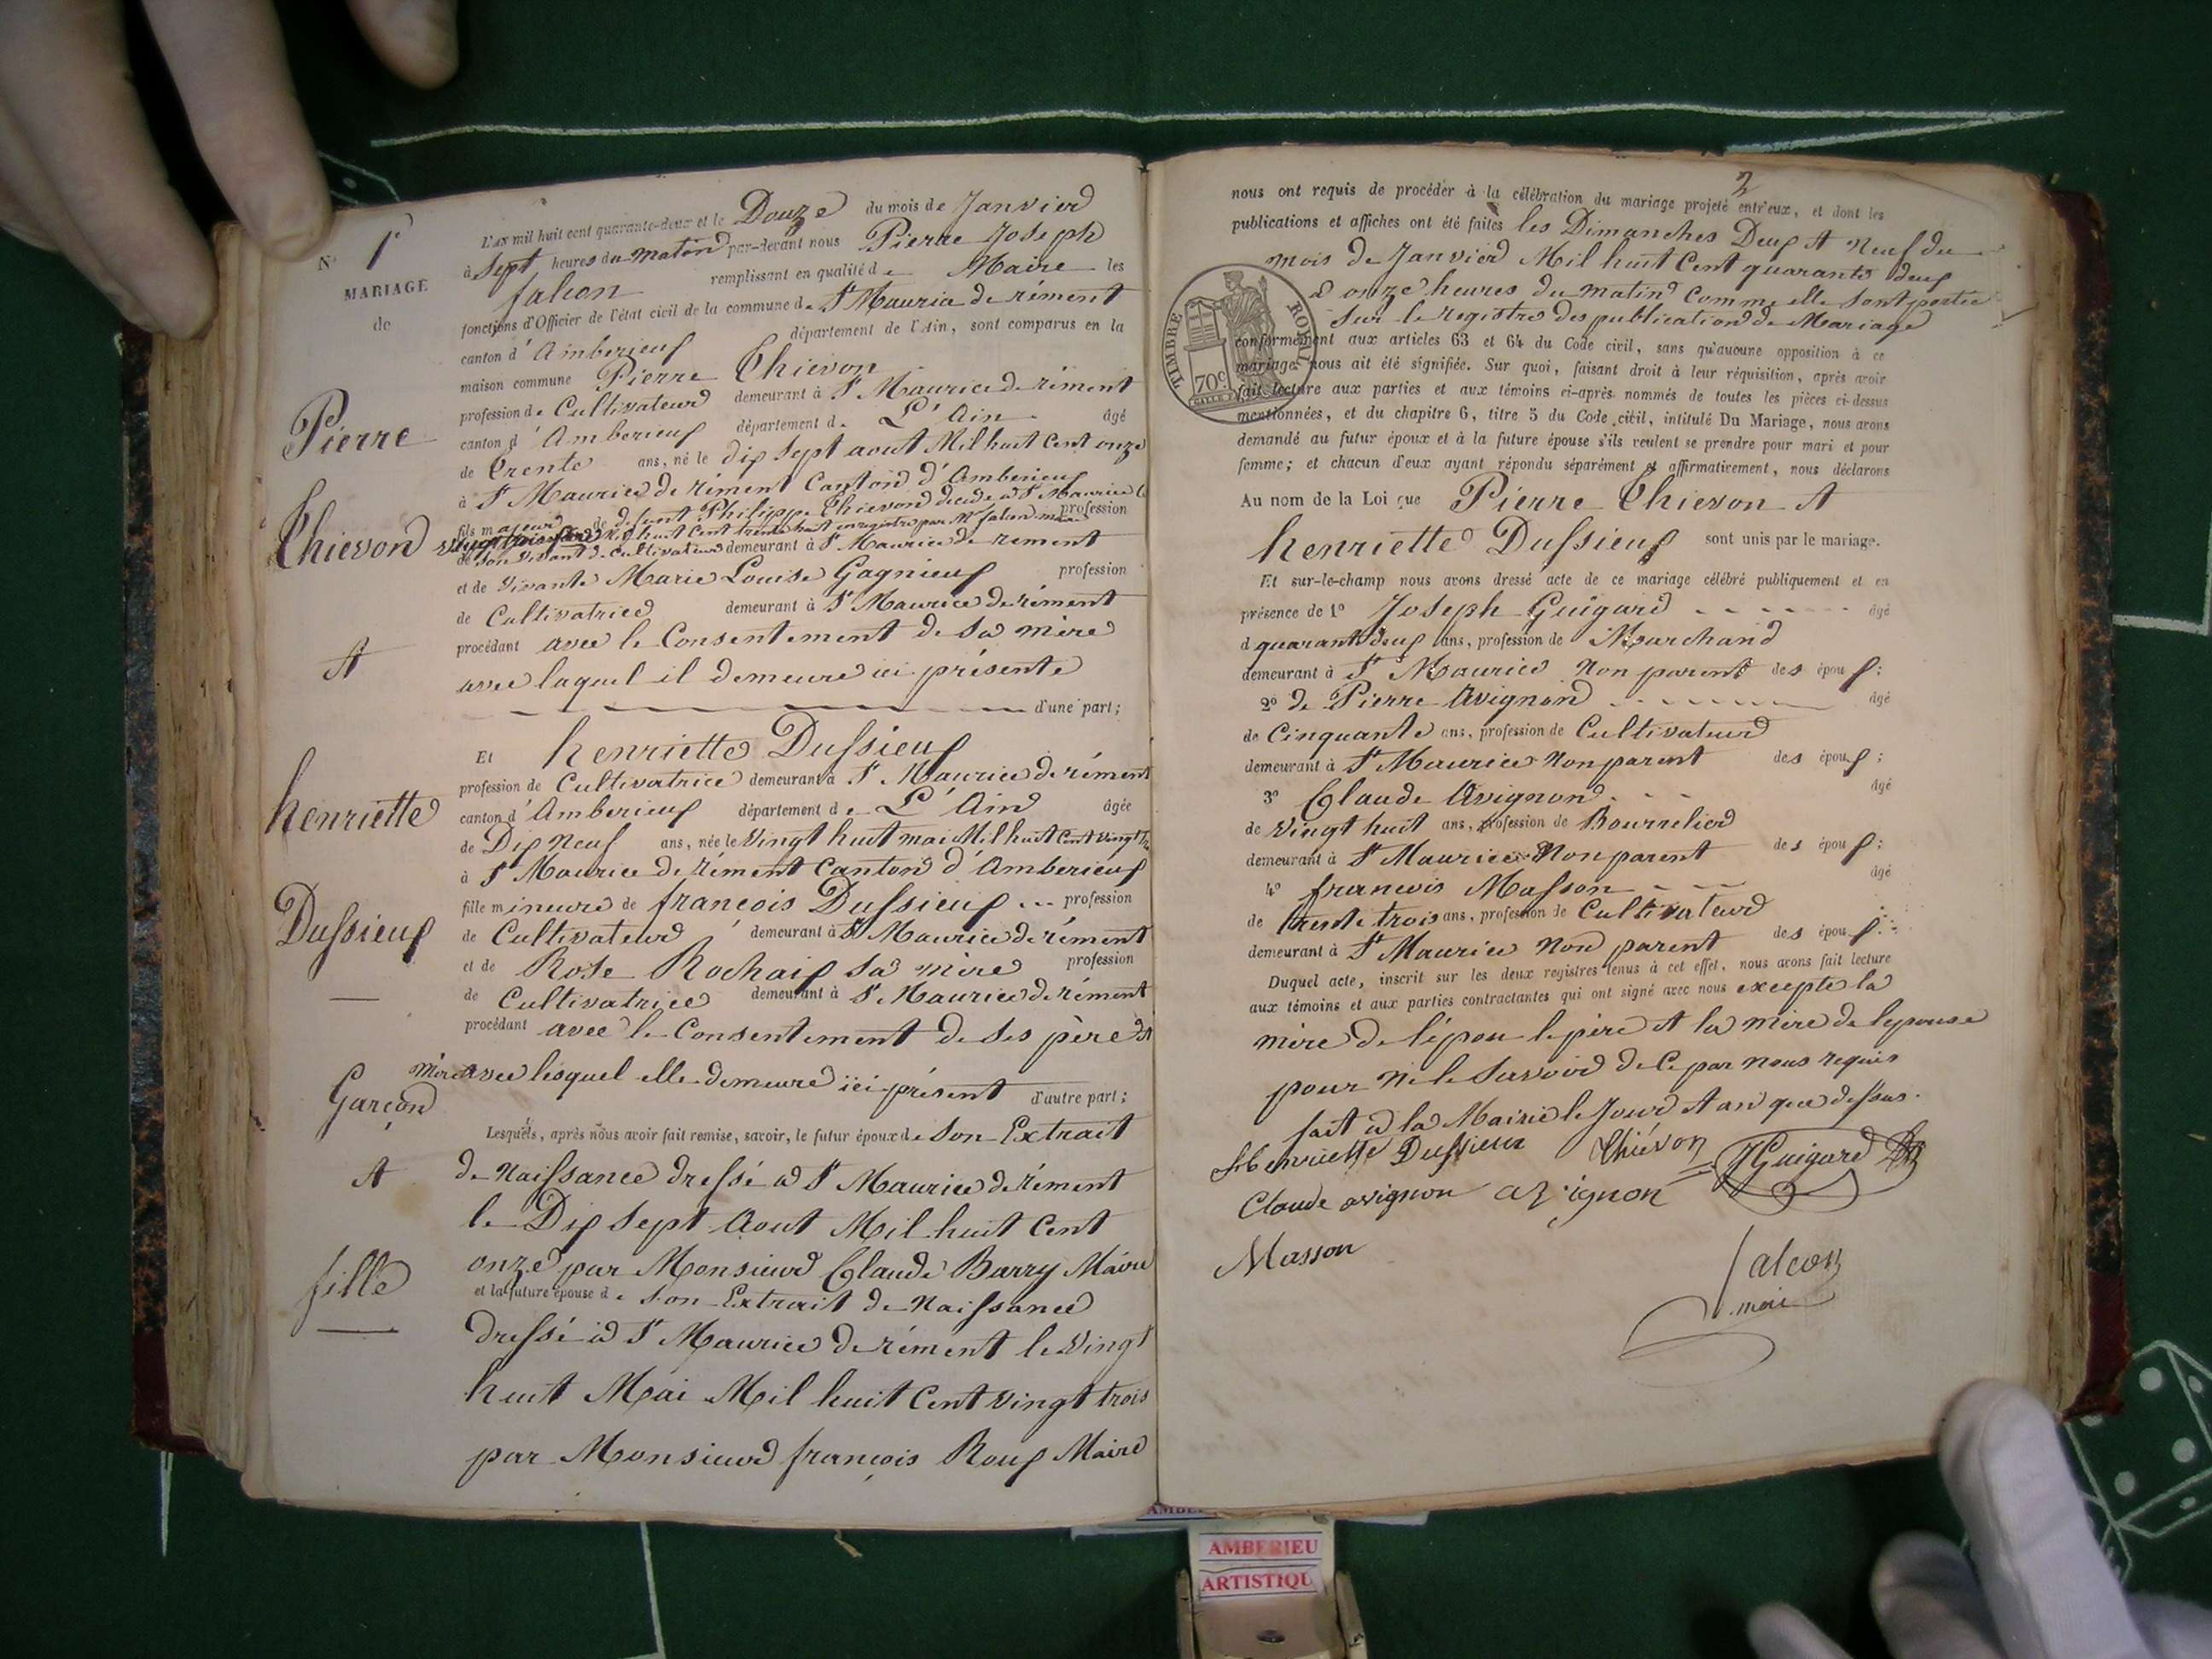 N° 1
MARIAGE
de
Pierre
Thievon
et
henriette
Dussieux
Garçon
et
fille
L'an mil huit cent quarante-deux et le Douze du mois de Janvier
à Sept heures du matin par-devant nous Pierre Joseph
falcon remplissant en qualité de Maire les
fonctions d'Officier de l'état civil de la commune de St Maurice de rément
canton d'Amberieux département de l'Ain, sont comparus en la
maison commune Pierre Thievon
profession de Cultivateur demeurant à St Maurice de rément
canton d'Amberieux département de L'Ain âgé
de trente ans, né le dix Sept aout Mil huit Cent onze
à St Maurice de rément Canton d'Amberieux
fils majeur de defunt Philippe Thievon décédé à St Maurice le
mil huit Cent trente huit enregistré par Mr falcon maire profession
de son vivant de cultivateur demeurant à St Maurice de rement
et de vivante Marie Louise Gagnieux profession
de Cultivatrice demeurant à St Maurice de rément
procédant avec le Consentement de Sa mère
avec laquel il demeure ici présente
d'une part;
Et henriette Dussieux
profession de Cultivatrice demeurant à St Maurice de rément
canton d'Amberieux département de L'Ain âgée
de Dix Neuf ans, née le vingt huit mai Mil huit Cent vingt
à St Maurice de rément Canton d'Amberieux
fille mineure de françois Dussieux profession
de Cultivateur demeurant à St Maurice de rément
et de Rose Rochaix Sa mère profession
de Cultivatrice demeurant à St Maurice de rément
procédant avec le Consentement de Ses père et
mère avec lesquel elle demeure ici présent d'autre part;
Lesquels, après nous avoir fait remise, savoir, le futur époux de Son Extrait
de Naissance dressé à St Maurice de rément
le Dix Sept Aout Mil huit Cent
onze par Monsieur Claude Barry Maire
et la future épouse de Son Extrait de Naissance
dressé à St Maurice de rément le vingt
huit Mai Mil huit Cent vingt trois
par Monsieur françois Roux Maire
2
nous ont requis de procéder à la célébration du mariage projeté entr'eux, et dont les
publications et affiches ont été faites les Dimanches Deux et Neuf du
mois de Janvier Mil huit Cent quarante deux
à onze heures du matin comme elle sont portée
sur le registre des publication de Mariage
TIMBRE ROYAL
70c
conformément aux articles 63 et 64 du Code civil, sans qu'aucune opposition à ce
mariage nous ait été signifiée. Sur quoi, faisant droit à leur réquisition, après avoir
fait lecture aux parties et aux témoins ci-après nommés de toutes les pièces ci-dessus
mentionnées, et du chapitre 6, titre 5 du Code civil, intitulé Du Mariage, nous avons
demandé au futur époux et à la future épouse s'ils veulent se prendre pour mari et pour
femme; et chacun d'eux ayant répondu séparément et affirmativement, nous déclarons
Au nom de la Loi que Pierre Thievon et
henriette Dussieux sont unis par le mariage.
Et sur-le-champ nous avons dressé acte de ce mariage célébré publiquement et en
présence de 1° Joseph Guigard âgé
d quarante deux ans, profession de Marchand
demeurant à St Maurice Non parent des époux;
2° de Pierre Avignon âgé
de Cinquante ans, profession de Cultivateur
demeurant à St Maurice Non parent des époux;
3° Claude Avignon âgé
de vingt huit ans, profession de Bourrelier
demeurant à St Maurice Non parent des époux;
4° francois Masson âgé
de trente trois ans, profession de Cultivateur
demeurant à St Maurice Non parent des époux
Duquel acte, inscrit sur les deux registres tenus à cet effet, nous avons fait lecture
aux témoins et aux parties contractantes qui ont signé avec nous excepte la
mère de l'épou le père et la mère de lepouse
pour ne le Savoir de Ce par nous requis
fait à la Mairie le Jour et an que dessus.
henriette Dussieux Thiévon JGuigard
Claude avignon avignon
Masson
falcon
maire
AMBERIEU
ARTISTIQU